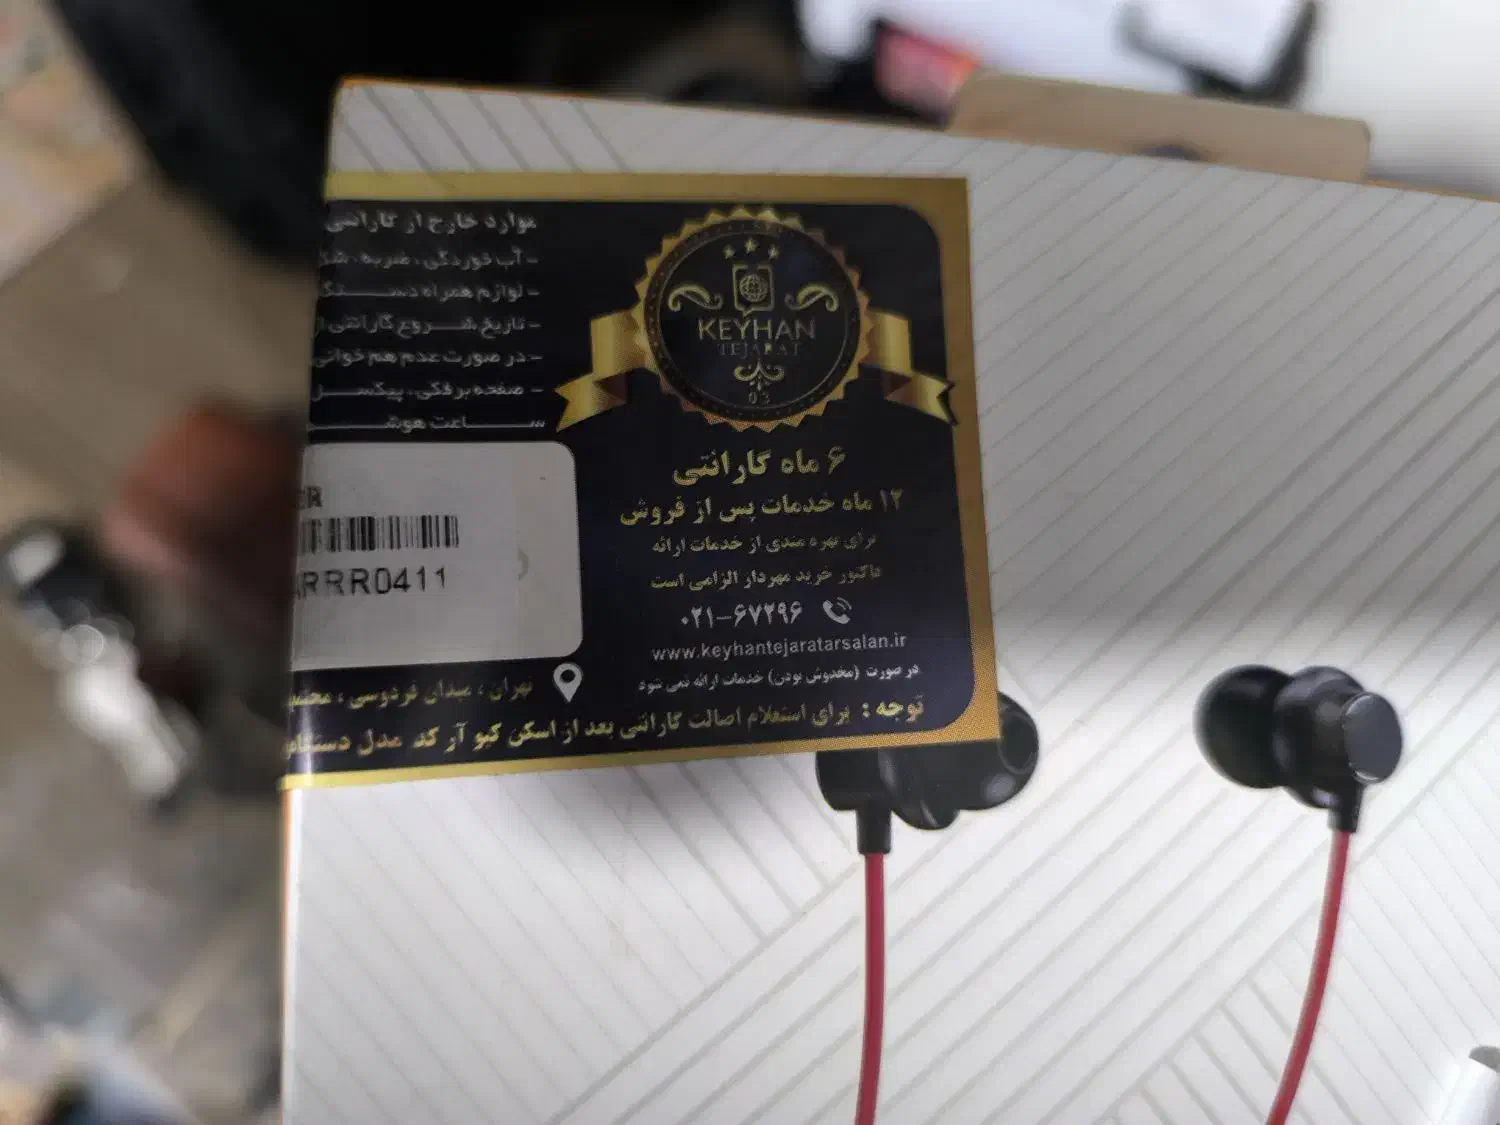 موارد خارج از گارانتی
- آب خوردگی، ضربه،
- لوازم همراه
- تاریخ شروع گارانتی
- در صورت عدم هم خوانی
- صفحه برفکی، پیکسل
ساعت هوش
KEYHAN
TEJARAT
03
۶ ماه گارانتی
۱۲ ماه خدمات پس از فروش
برای بهره مندی از خدمات ارائه
فاکتور خرید مهردار الزامی است
۰۲۱-۶۷۲۹۶
www.keyhantejaratarsalan.ir
در صورت (مخدوش بودن) خدمات ارائه نمی شود
RRR0411
تهران ، میدان فردوسی ،
توجه : برای استعلام اصالت گارانتی بعد از اسکن کیو آر کد مدل دستگاه